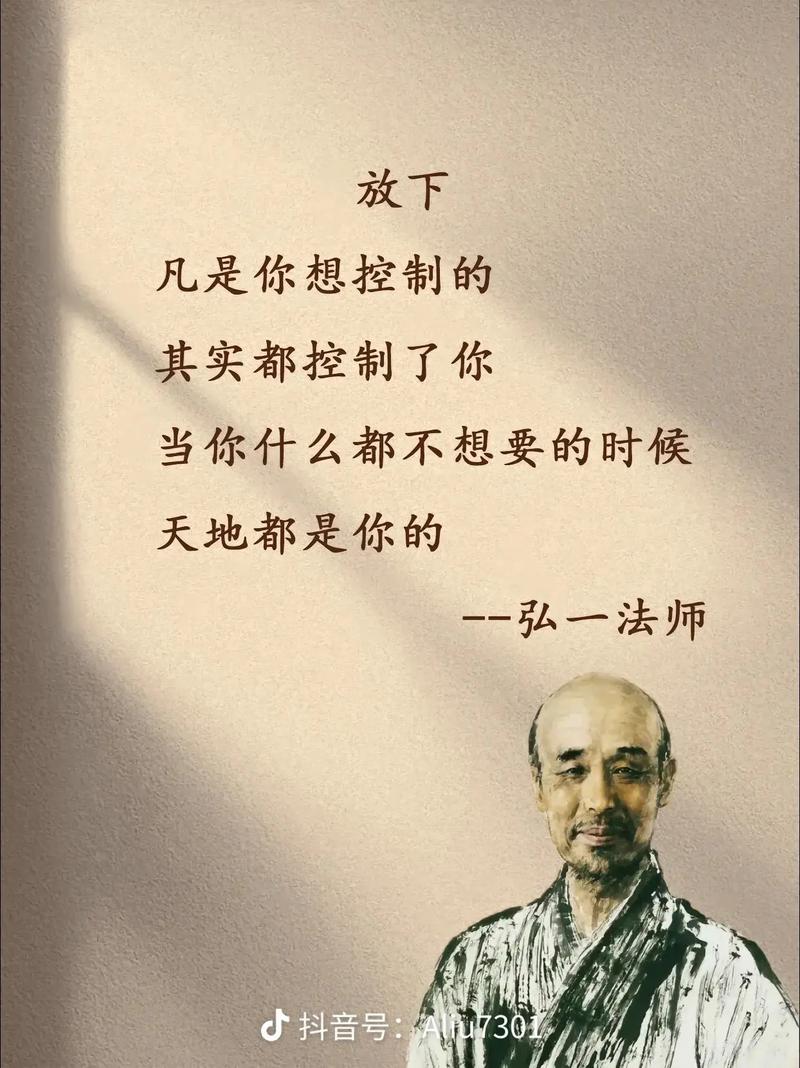 放下
凡是你想控制的
其实都控制了你
当你什么都不想要的时候
天地都是你的
--弘一法师
抖音号：Aliu7301